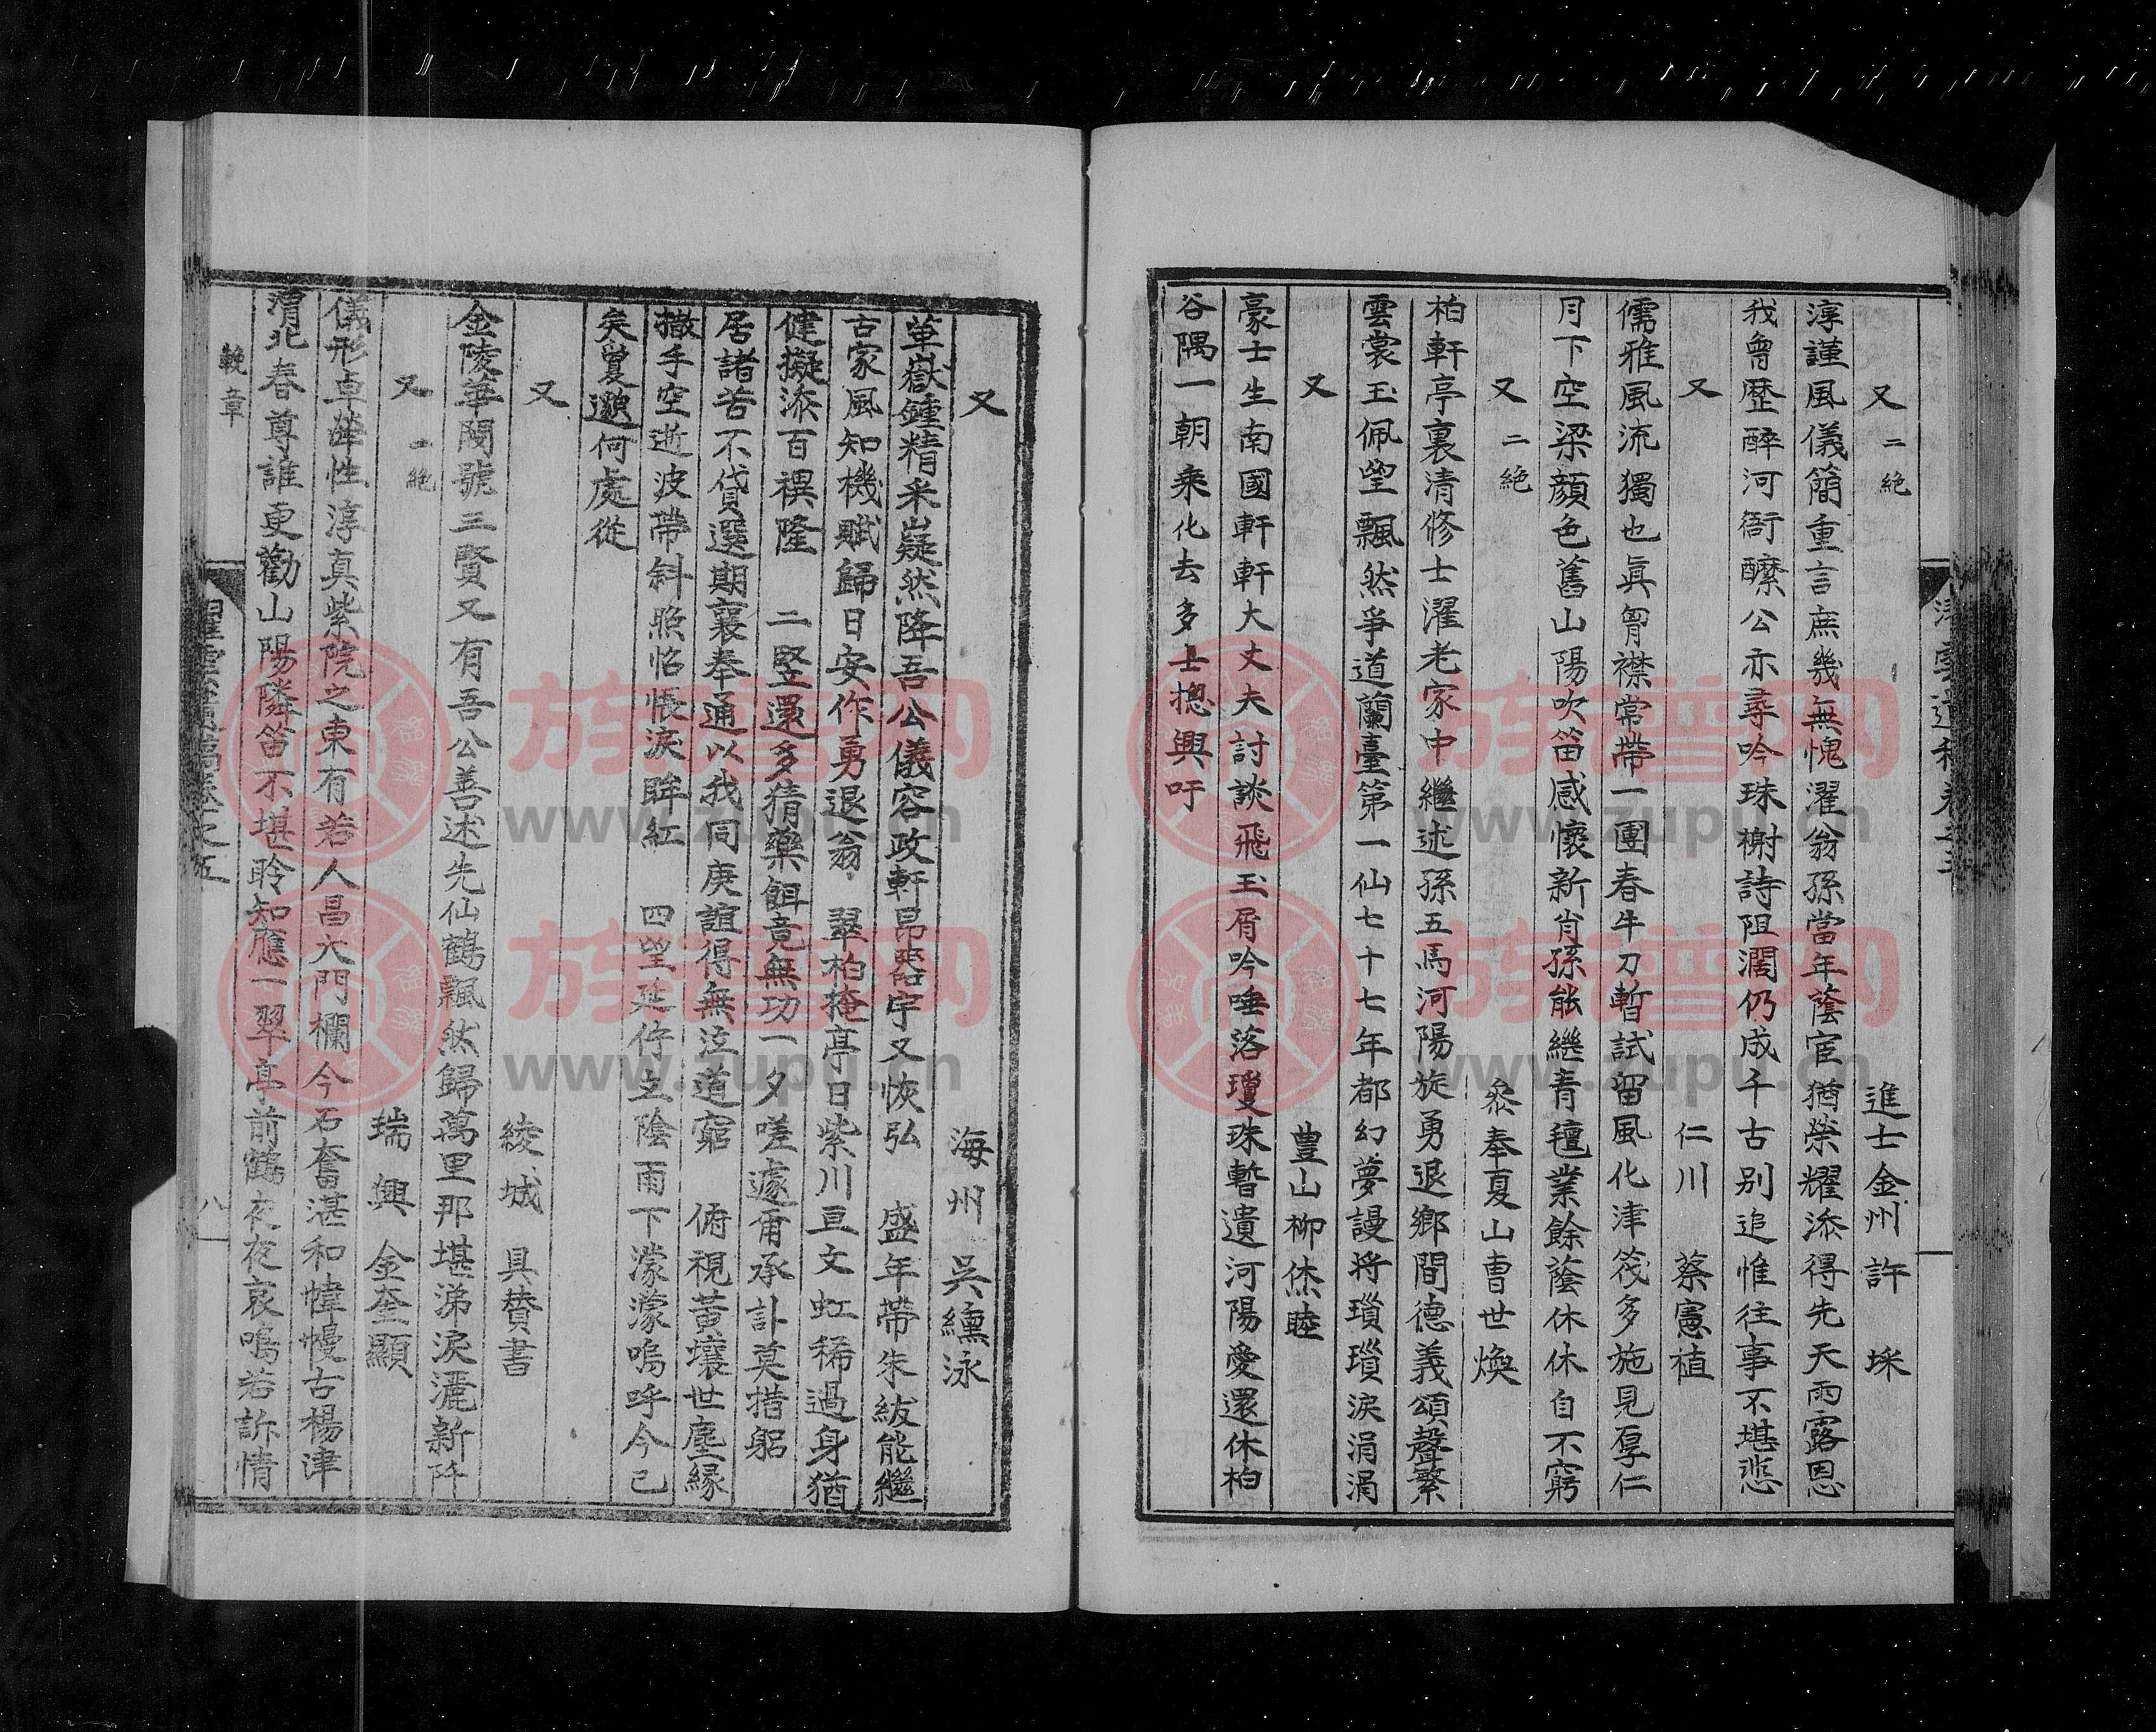 又 二絶 進士金州許 埰
淳謹風儀簡重言庶幾無愧濯翁孫當年蔭宦猶榮耀添得先天雨露恩
我曾歷醉河衙醵公亦尋吟珠榭詩阻濶仍成千古別追惟往事不堪悲
又 仁川 蔡憲植
儒雅風流獨也眞胷襟常帶一團春牛刀暫試留風化津筏多施見厚仁
月下空梁顔色舊山陽吹笛感懷新肖孫能繼青氊業餘蔭休休自不窮
又 二絶 叅奉夏山曺世煥
柏軒亭裏清修士濯老家中繼述孫五馬河陽旋勇退鄉閭德義頌聲繁
雲裳玉佩望飄然爭道蘭臺第一仙七十七年都幻夢謾將瑣瑣淚涓涓
又 豊山柳烋睦
豪士生南國軒軒大丈夫討談飛玉屑吟唾落瓊珠暫遺河陽愛還休柏
谷隅一朝乘化去多士摠興吁
又 海州 吳纁泳
華嶽鍾精釆嶷然降吾公儀容政軒昂噐宇又恢弘 盛年帶朱紱能繼
古家風知機賦歸日安作勇退翁 翠柏掩亭日紫川亘文虹稀過身猶
健擬添百禩隆 二竪還多猜藥餌竟無功一夕嗟遽甭承訃莫措躬
居諸苦不貸選期襄奉通以我同庚誼得無泣道窮 俯視黃壤世塵緣
撒手空逝波帶斜照怊悵淚眸紅 四望延佇立陰雨下濛濛嗚呼今已
矣夐邈何處從
又 綾城 具贊書
金陵華閥號三賢又有吾公善述先仙鶴飄然歸萬里那堪涕淚灑新阡
又 一絶 瑞興 金奎顯
儀形卓犖性淳真紫院之東有若人昌大門欄今石奮湛和幃幔古楊津
渭北春尊誰更勸山陽隣笛不堪聆知應一翠亭前鶴夜夜哀鳴若訴情
輓章
濯雲遺稿卷之五
八一
族譜网
www.zupu.cn
族譜网
www.zupu.cn
族譜网
www.zupu.cn
族譜网
www.zupu.cn